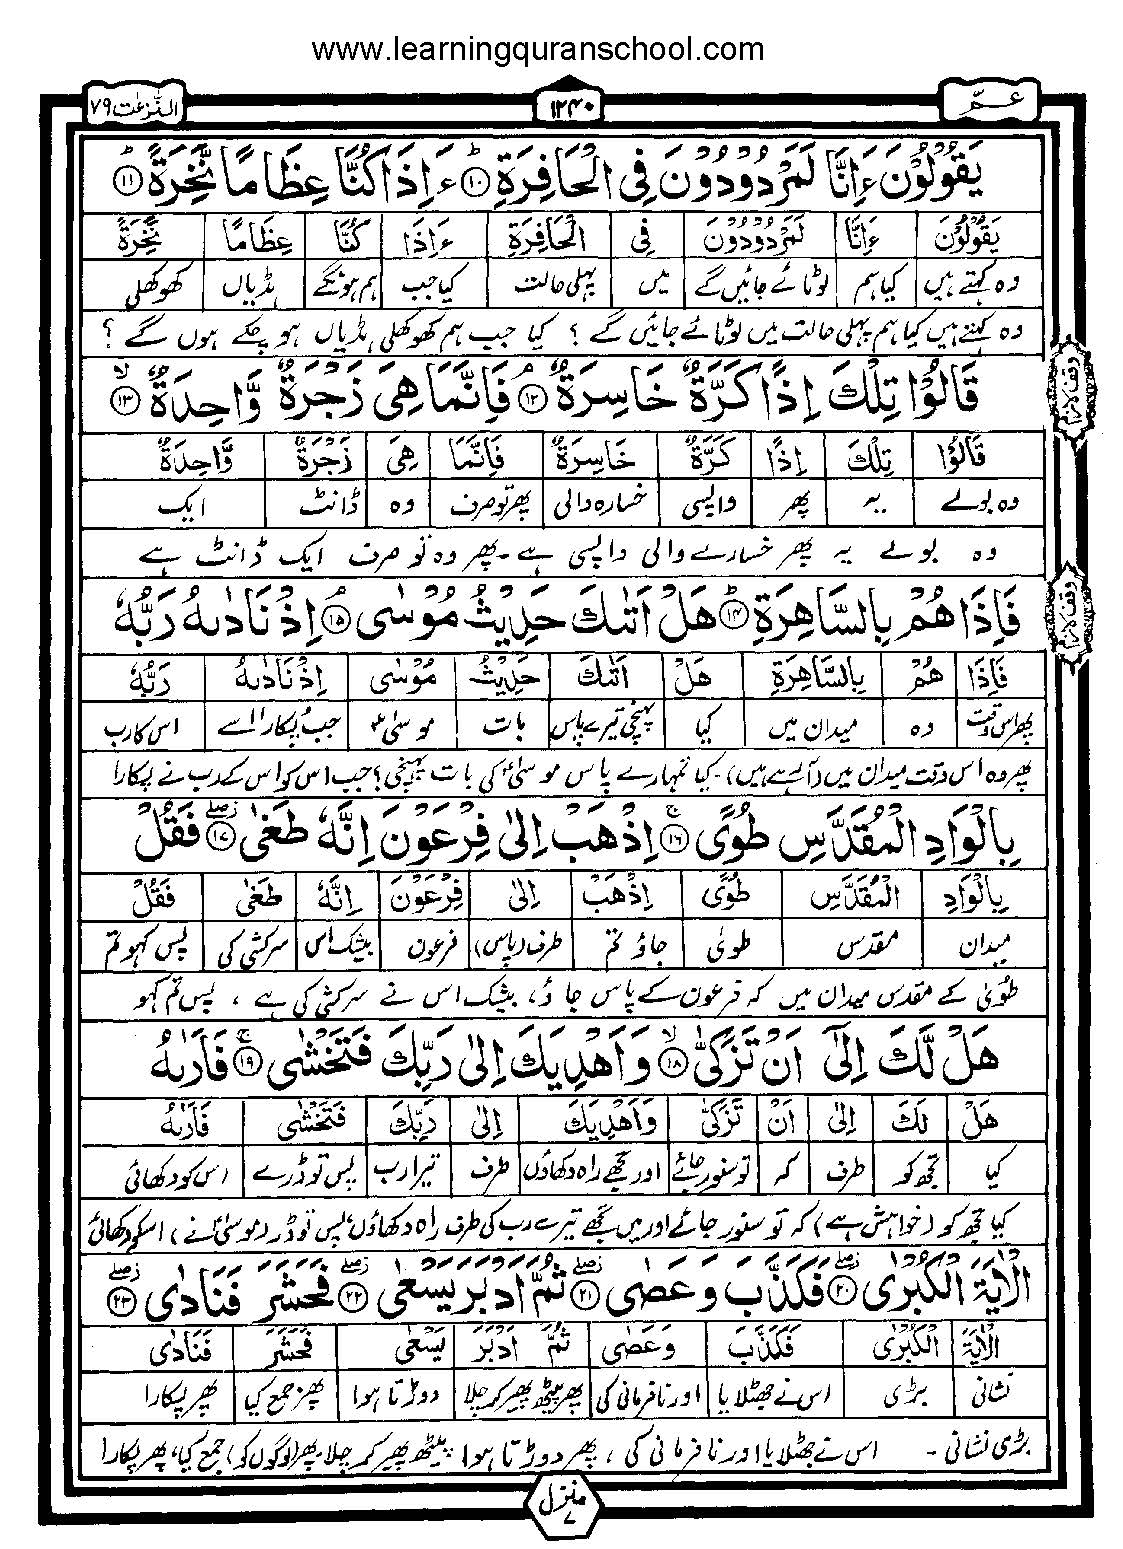 www.learningquranschool.com
عـمّ
١٢٤٠
النّٰزعٰت ٧٩
يَقُوْلُوْنَ ءَاِنَّا لَمَرْدُوْدُوْنَ فِى الْحَافِرَةِ ۱۰ ءَاِذَا كُنَّا عِظَامًا نَّخِرَةً ۱۱
يَقُوْلُوْنَ ءَاِنَّا لَمَرْدُوْدُوْنَ فِى الْحَافِرَةِ ءَاِذَا كُنَّا عِظَامًا نَّخِرَةً
وہ کہتے ہیں کیا ہم لوٹائے جائیں گے میں پہلی حالت کیا جب ہم ہونگے ہڈیاں کھوکھلی
وہ کہتے ہیں کیا ہم پہلی حالت میں لوٹائے جائیں گے ؟ کیا جب ہم کھوکھلی ہڈیاں ہو چکے ہوں گے ؟
قَالُوْا تِلْكَ اِذًا كَرَّةٌ خَاسِرَةٌ ۱۲ فَاِنَّمَا هِىَ زَجْرَةٌ وَّاحِدَةٌ ۱۳
وقف لازم
قَالُوْا تِلْكَ اِذًا كَرَّةٌ خَاسِرَةٌ فَاِنَّمَا هِىَ زَجْرَةٌ وَّاحِدَةٌ
وہ بولے یہ پھر واپسی خسارہ والی پھر تو صرف وہ ڈانٹ ایک
وہ بولے یہ پھر خسارے والی واپسی ہے - پھر وہ تو صرف ایک ڈانٹ ہے
فَاِذَا هُمْ بِالسَّاهِرَةِ ۱۴ هَلْ اَتٰىكَ حَدِيْثُ مُوْسٰى ۱۵ اِذْ نَادٰىهُ رَبُّهٗ
وقف لازم
فَاِذَا هُمْ بِالسَّاهِرَةِ هَلْ اَتٰىكَ حَدِيْثُ مُوْسٰى اِذْ نَادٰىهُ رَبُّهٗ
پھر اس وقت وہ میدان میں کیا پہنچی تیرے پاس بات موسٰیؑ جب پکارا اسے اس کا رب
پھر وہ اس وقت میدان میں (آ رہے ہیں) - کیا تمہارے پاس موسٰیؑ کی بات پہنچی ؟ جب اس کو اس کے رب نے پکارا
بِالْوَادِ الْمُقَدَّسِ طُوًى ۱۶ اِذْهَبْ اِلٰى فِرْعَوْنَ اِنَّهٗ طَغٰى ۱۷ فَقُلْ
بِالْوَادِ الْمُقَدَّسِ طُوًى اِذْهَبْ اِلٰى فِرْعَوْنَ اِنَّهٗ طَغٰى فَقُلْ
میدان مقدس طویٰ جاؤ تم طرف (پاس) فرعون بیشک اس سرکشی کی پس کہو تم
طُویٰ کے مقدس میدان میں کہ فرعون کے پاس جاؤ، بیشک اس نے سرکشی کی ہے ، پس تم کہو
هَلْ لَّكَ اِلٰٓى اَنْ تَزَكّٰى ۱۸ وَاَهْدِيَكَ اِلٰى رَبِّكَ فَتَخْشٰى ۱۹ فَاَرٰىهُ
هَلْ لَكَ اِلٰى اَنْ تَزَكّٰى وَاَهْدِيَكَ اِلٰى رَبِّكَ فَتَخْشٰى فَاَرٰىهُ
کیا تجھ کو طرف کہ تو سنور جائے اور تجھے راہ دکھاؤں طرف تیرا رب پس تو ڈرے اس کو دکھائی
کیا تجھ کو (خواہش ہے) کہ تو سنور جائے اور میں تجھے تیرے رب کی طرف راہ دکھاؤں پس تو ڈر (موسٰیؑ نے) اسکو دکھائی
الْاٰيَةَ الْكُبْرٰى ۲۰ فَكَذَّبَ وَعَصٰى ۲۱ ثُمَّ اَدْبَرَ يَسْعٰى ۲۲ فَحَشَرَ فَنَادٰى ۲۳
الْاٰيَةَ الْكُبْرٰى فَكَذَّبَ وَعَصٰى ثُمَّ اَدْبَرَ يَسْعٰى فَحَشَرَ فَنَادٰى
نشانی بڑی اس نے جھٹلایا اور نافرمانی کی پھر پیٹھ پھیر کر چلا دوڑتا ہوا پھر جمع کیا پھر پکارا
بڑی نشانی - اس نے جھٹلایا اور نافرمانی کی ، پھر دوڑتا ہوا پیٹھ پھیر کر چلا، پھر (لوگوں کو) جمع کیا، پھر پکارا
منزل ٧